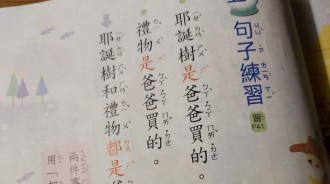 句子練習
習P41
耶誕樹是爸爸買的。
禮物是爸爸買的。
耶誕樹和禮物都是爸
兩件事
用「